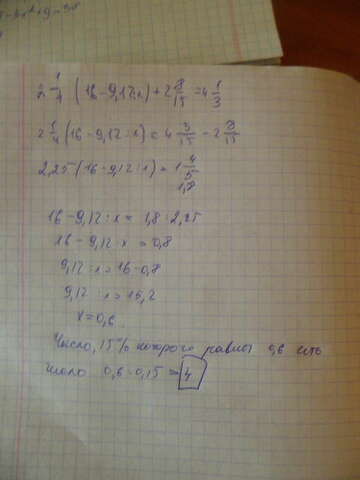 2 1/4 (16-9,12:x)+2 8/15=4 1/3
2 1/4 (16-9,12:x)=4 5/15-2 8/15
2,25(16-9,12:x)=1 4/5
1,8
16-9,12:x=1,8:2,25
16-9,12:x=0,8
9,12:x=16-0,8
9,12:x=15,2
x=0,6.
Число, 15% которого равны 0,6 есть
число 0,6:0,15=4